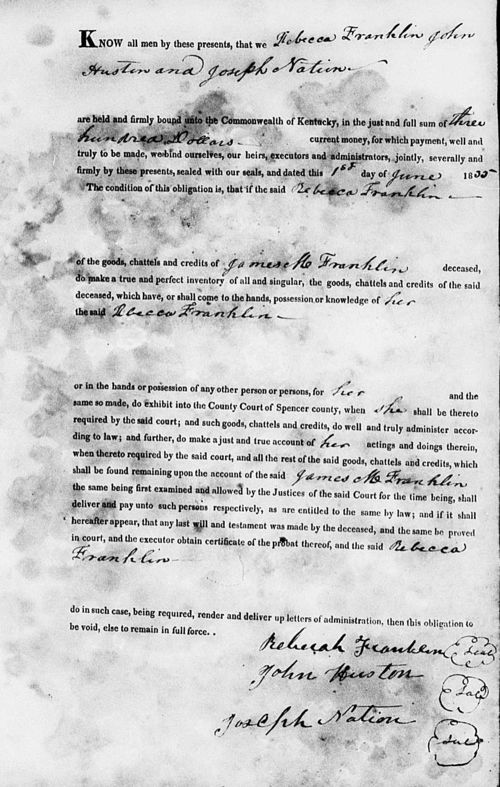 KNOW all men by these presents, that we Rebecca Franklin John
Huston and Joseph Nation
are held and firmly bound unto the Commonwealth of Kentucky, in the just and full sum of three
hundred Dollars current money, for which payment, well and
truly to be made, we bind ourselves, our heirs, executors and administrators, jointly, severally and
firmly by these presents, sealed with our seals, and dated this 1st day of June 1835
The condition of this obligation is, that if the said Rebecca Franklin
of the goods, chattels and credits of James M Franklin deceased,
do make a true and perfect inventory of all and singular, the goods, chattels and credits of the said
deceased, which have, or shall come to the hands, possession or knowledge of her
the said Rbecca Franklin
or in the hands or possession of any other person or persons, for her and the
same so made, do exhibit into the County Court of Spencer county, when she shall be thereto
required by the said court; and such goods, chattels and credits, do well and truly administer accor-
ding to law; and further, do make a just and true account of her actings and doings therein,
when thereto required by the said court, and all the rest of the said goods, chattels and credits, which
shall be found remaining upon the account of the said James M. Franklin
the same being first examined and allowed by the Justices of the said Court for the time being, shall
deliver and pay unto such persons respectively, as are entitled to the same by law; and if it shall
hereafter appear, that any last will and testament was made by the deceased, and the same be proved
in court, and the executor obtain certificate of the probat thereof, and the said Rebecca
Franklin
do in such case, being required, render and deliver up letters of administration, then this obligation to
be void, else to remain in full force.
Rebecah Franklin Seal
John Huston Seal
Joseph Nation Seal